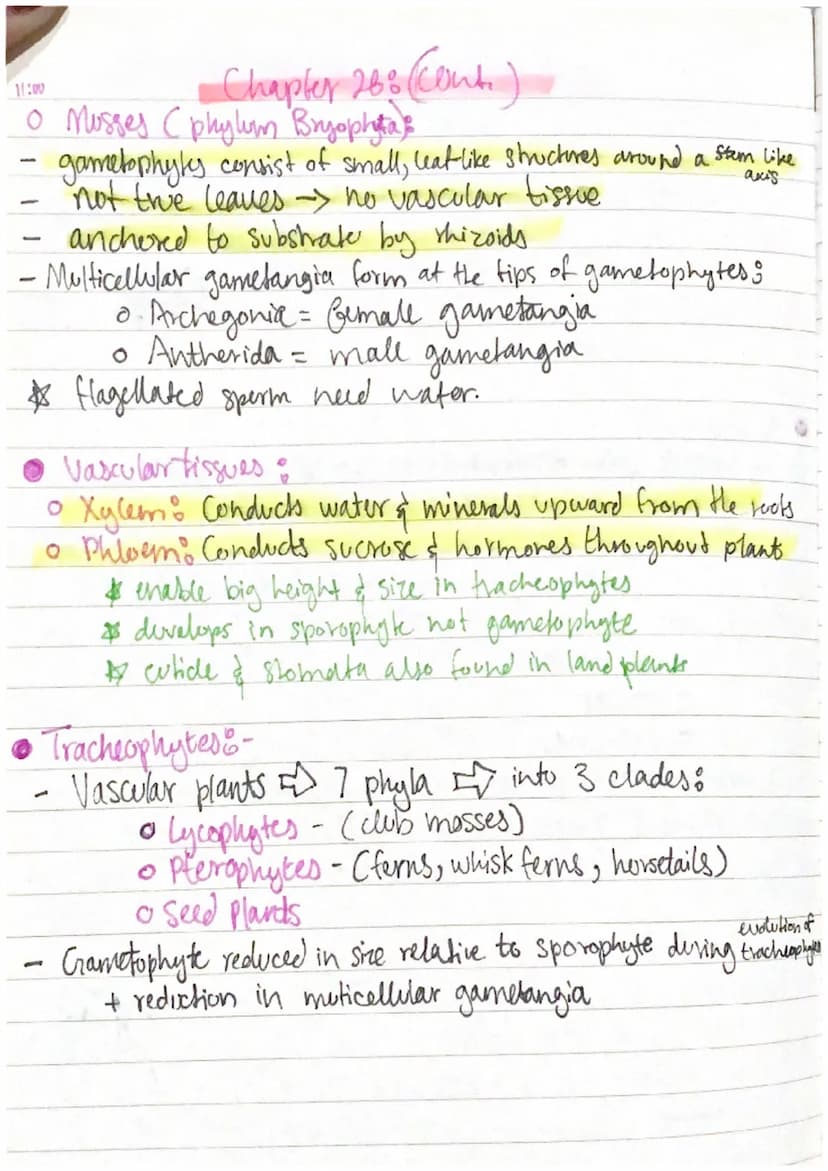 Chapter 28: (Cont.)
11:00
Mosses (phylum Bryophyta):
- gametophytes consist of small, leaf-like structures around a stem like axis
- not true leaves -> no vascular tissue
- anchored to substrate by rhizoids
- Multicellular gametangia form at the tips of gametophytes:
Archegonia = female gametangia
Antherida = male gametangia
flagellated sperm need water.
Vascular tissues:
Xylem: Conducts water & minerals upward from the roots
Phloem: Conducts sucrose & hormones throughout plant
enable big height & size in tracheophytes
develops in sporophyte not gametophyte
cuticle & stomata also found in land plants
Tracheophytes:-
- Vascular plants ⇨ 7 phyla ⇨ into 3 clades:
Lycophytes - (club mosses)
Pterophytes - (ferns, whisk ferns, horsetails)
Seed Plants
- Gametophyte reduced in size relative to sporophyte during evolution of tracheophytes
+ reduction in muticellular gametangia